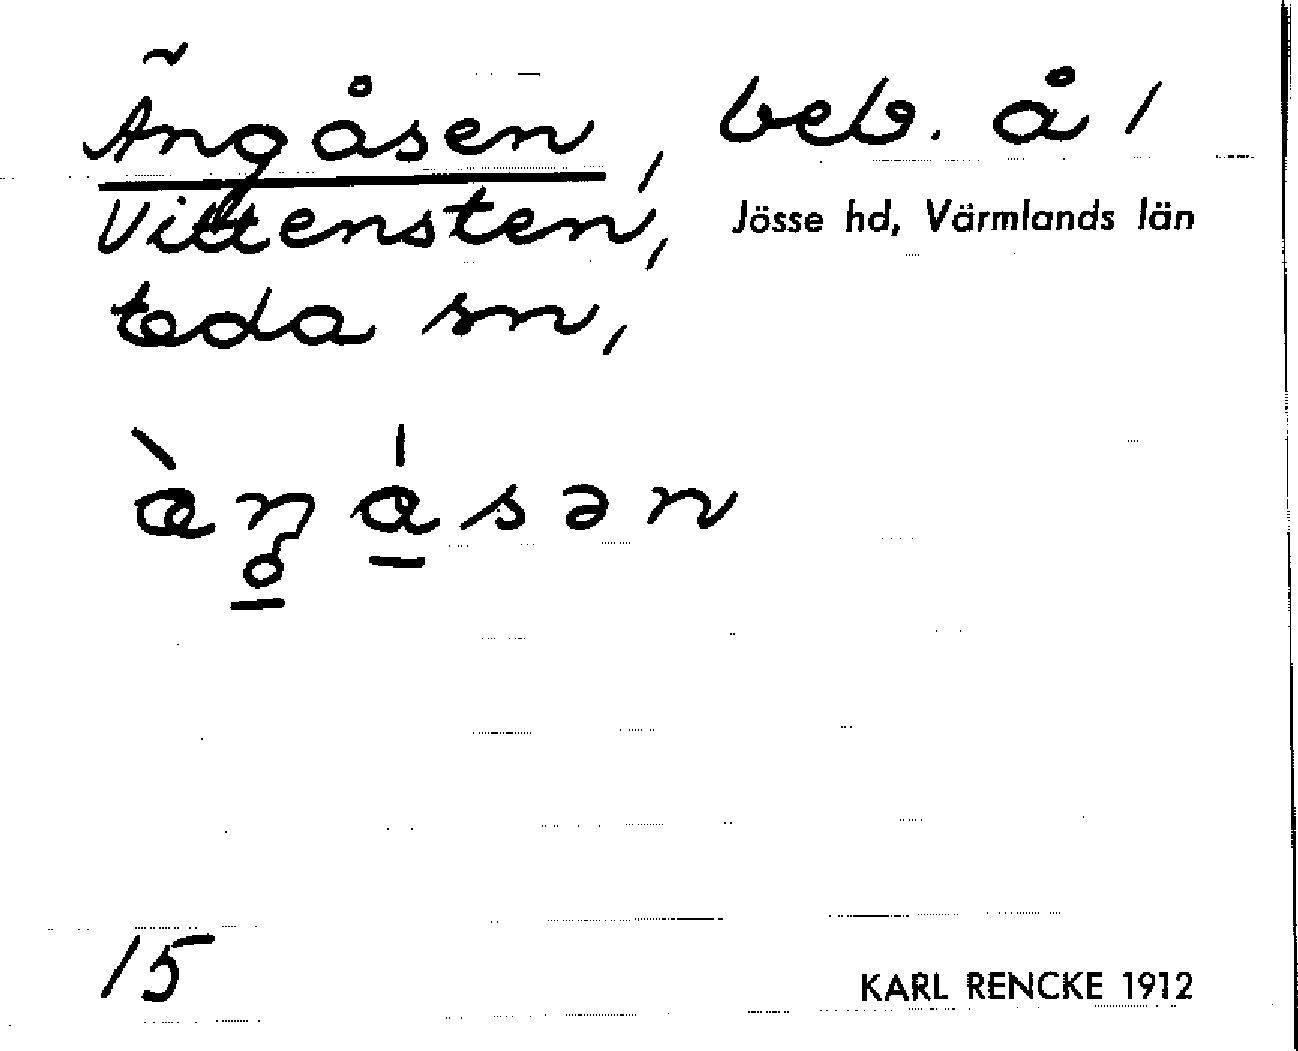 Ängåsen, beb. å /
Vittensten, Jösse hd, Värmlands län
eda sn,
æ̀ŋåsən
15
KARL RENCKE 1912